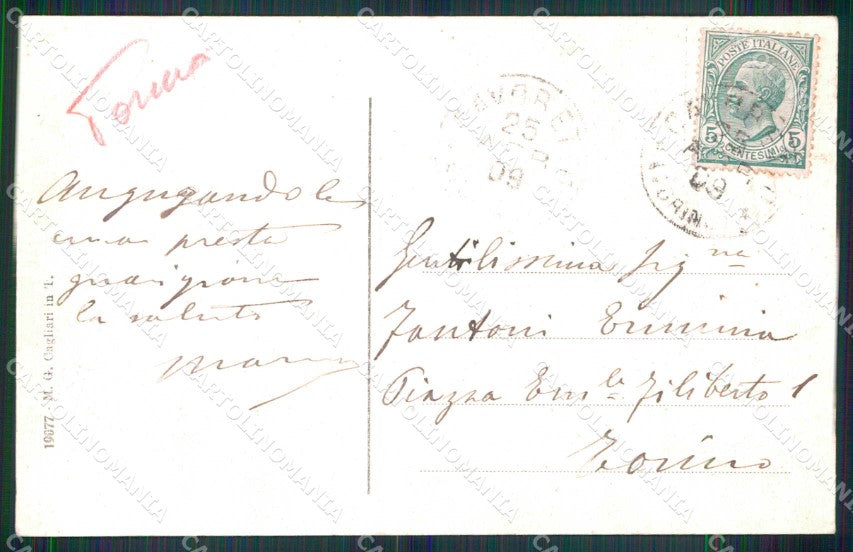 Torino
POSTE ITALIANE
5 CENTESIMI 5
25
09
09
Augurandole
una presta
guarigione
la saluto
Gentilissima Sig.na
Fantoni Erminia
Piazza Em.le Filiberto 1
Torino
19077. - M. G. Cagliari in T.
CARTOLINOMANIA